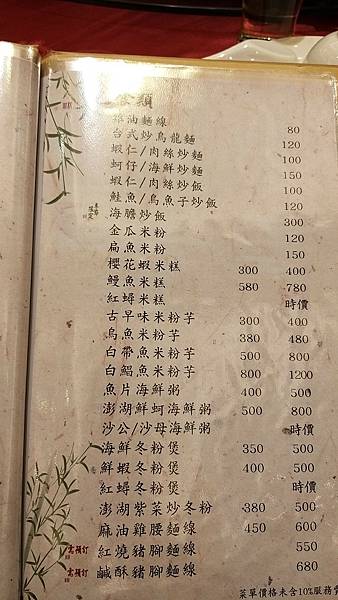 食類
油麵線 80
台式炒烏龍麵 120
蝦仁/肉絲炒麵 100
蚵仔/海鮮炒麵 150
蝦仁/肉絲炒飯 100
鮭魚/烏魚子炒飯 120
海膽炒飯 300
金瓜米粉 120
扁魚米粉 150
櫻花蝦米糕 300 400
鰻魚米糕 580 780
紅蟳米糕 時價
古早味米粉芋 300 400
烏魚米粉芋 380 480
白帶魚米粉芋 500 800
白鯧魚米粉芋 800 1200
魚片海鮮粥 400 500
澎湖鮮蚵海鮮粥 500 800
沙公/沙母海鮮粥 時價
海鮮冬粉煲 350 500
鮮蝦冬粉煲 400 500
紅蟳冬粉煲 時價
澎湖紫菜炒冬粉 380 500
麻油雞腰麵線 450 600
需預訂 紅燒豬腳麵線 550
需預訂 鹹酥豬腳麵線 680
菜單價格未含10%服務費